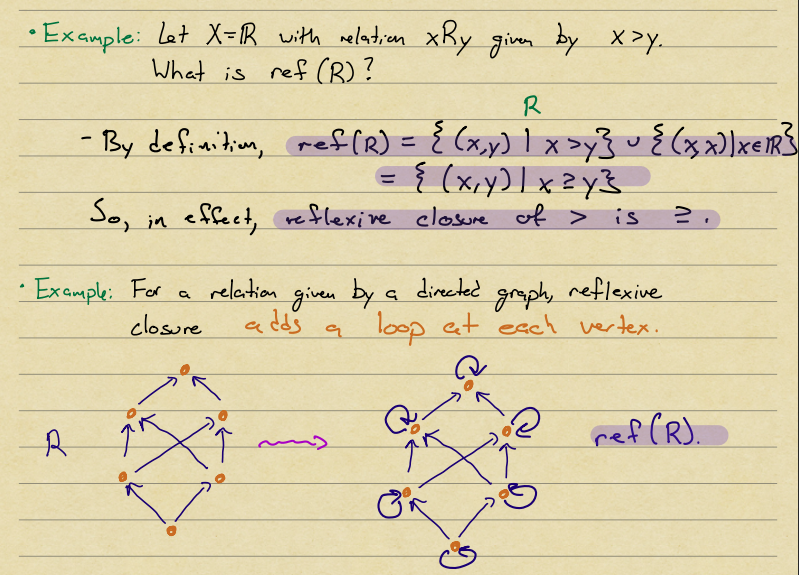 • Example: Let X=ℝ with relation xRy given by x>y.
What is ref(R)?
R
- By definition, ref(R) = { (x,y) | x>y} ∪ { (x,x)|x∈ℝ}
= { (x,y) | x≥y}
So, in effect, reflexive closure of > is ≥.
• Example: For a relation given by a directed graph, reflexive
closure adds a loop at each vertex.
R
ref(R).